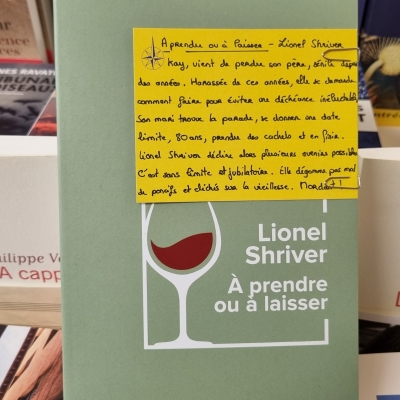 A prendre ou à laisser - Lionel Shriver
Kay, vient de perdre son père, sénile depuis
des années. Harassée de ces années, elle se demande
comment faire pour éviter une déchéance inéluctable.
Son mari trouve la parade, se donner une date
limite, 80 ans, prendre des cachets et en finir.
Lionel Shriver décline alors plusieurs avenirs possibles
C'est sans limite et jubilatoire. Elle dégomme pas mal
de poncifs et clichés sur la vieillesse. Mordant !
Lionel
Shriver
À prendre
ou à laisser
NES RAVAT
hilippe
A capp